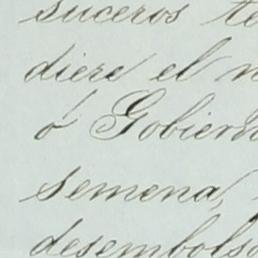 suceros te
diere el n
ó Gobierno
semena,
desembolso